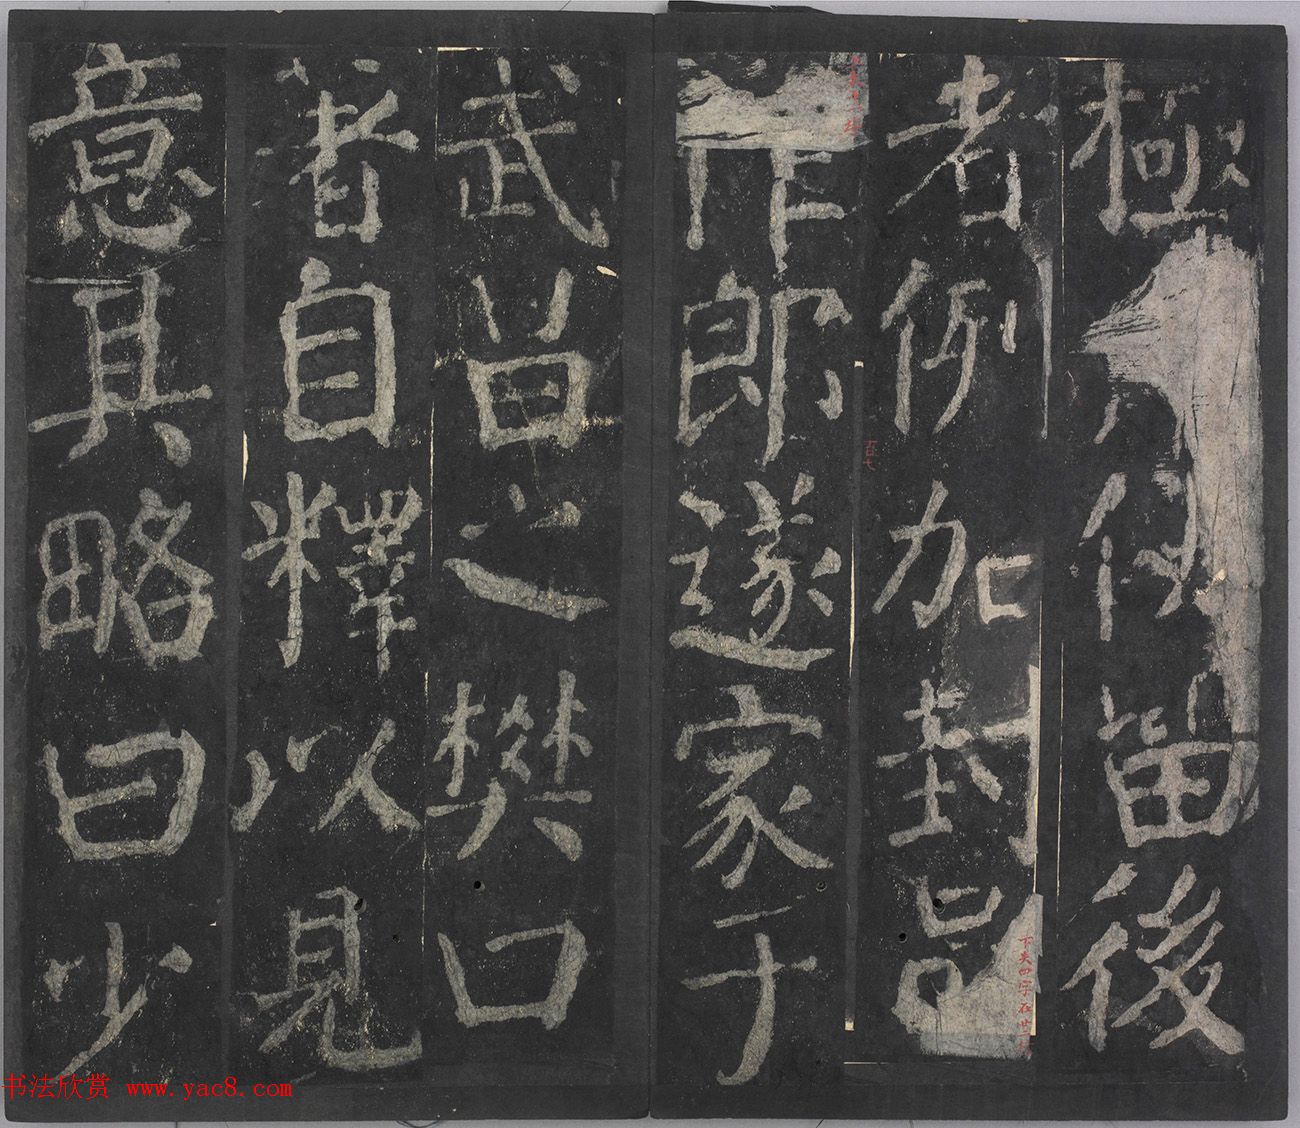 極使留後
者例加封邑
作郎遂家于
武昌之樊口
著自釋以見
意其略曰少
下失四字在廿
百七
书法欣赏 www.yac8.com